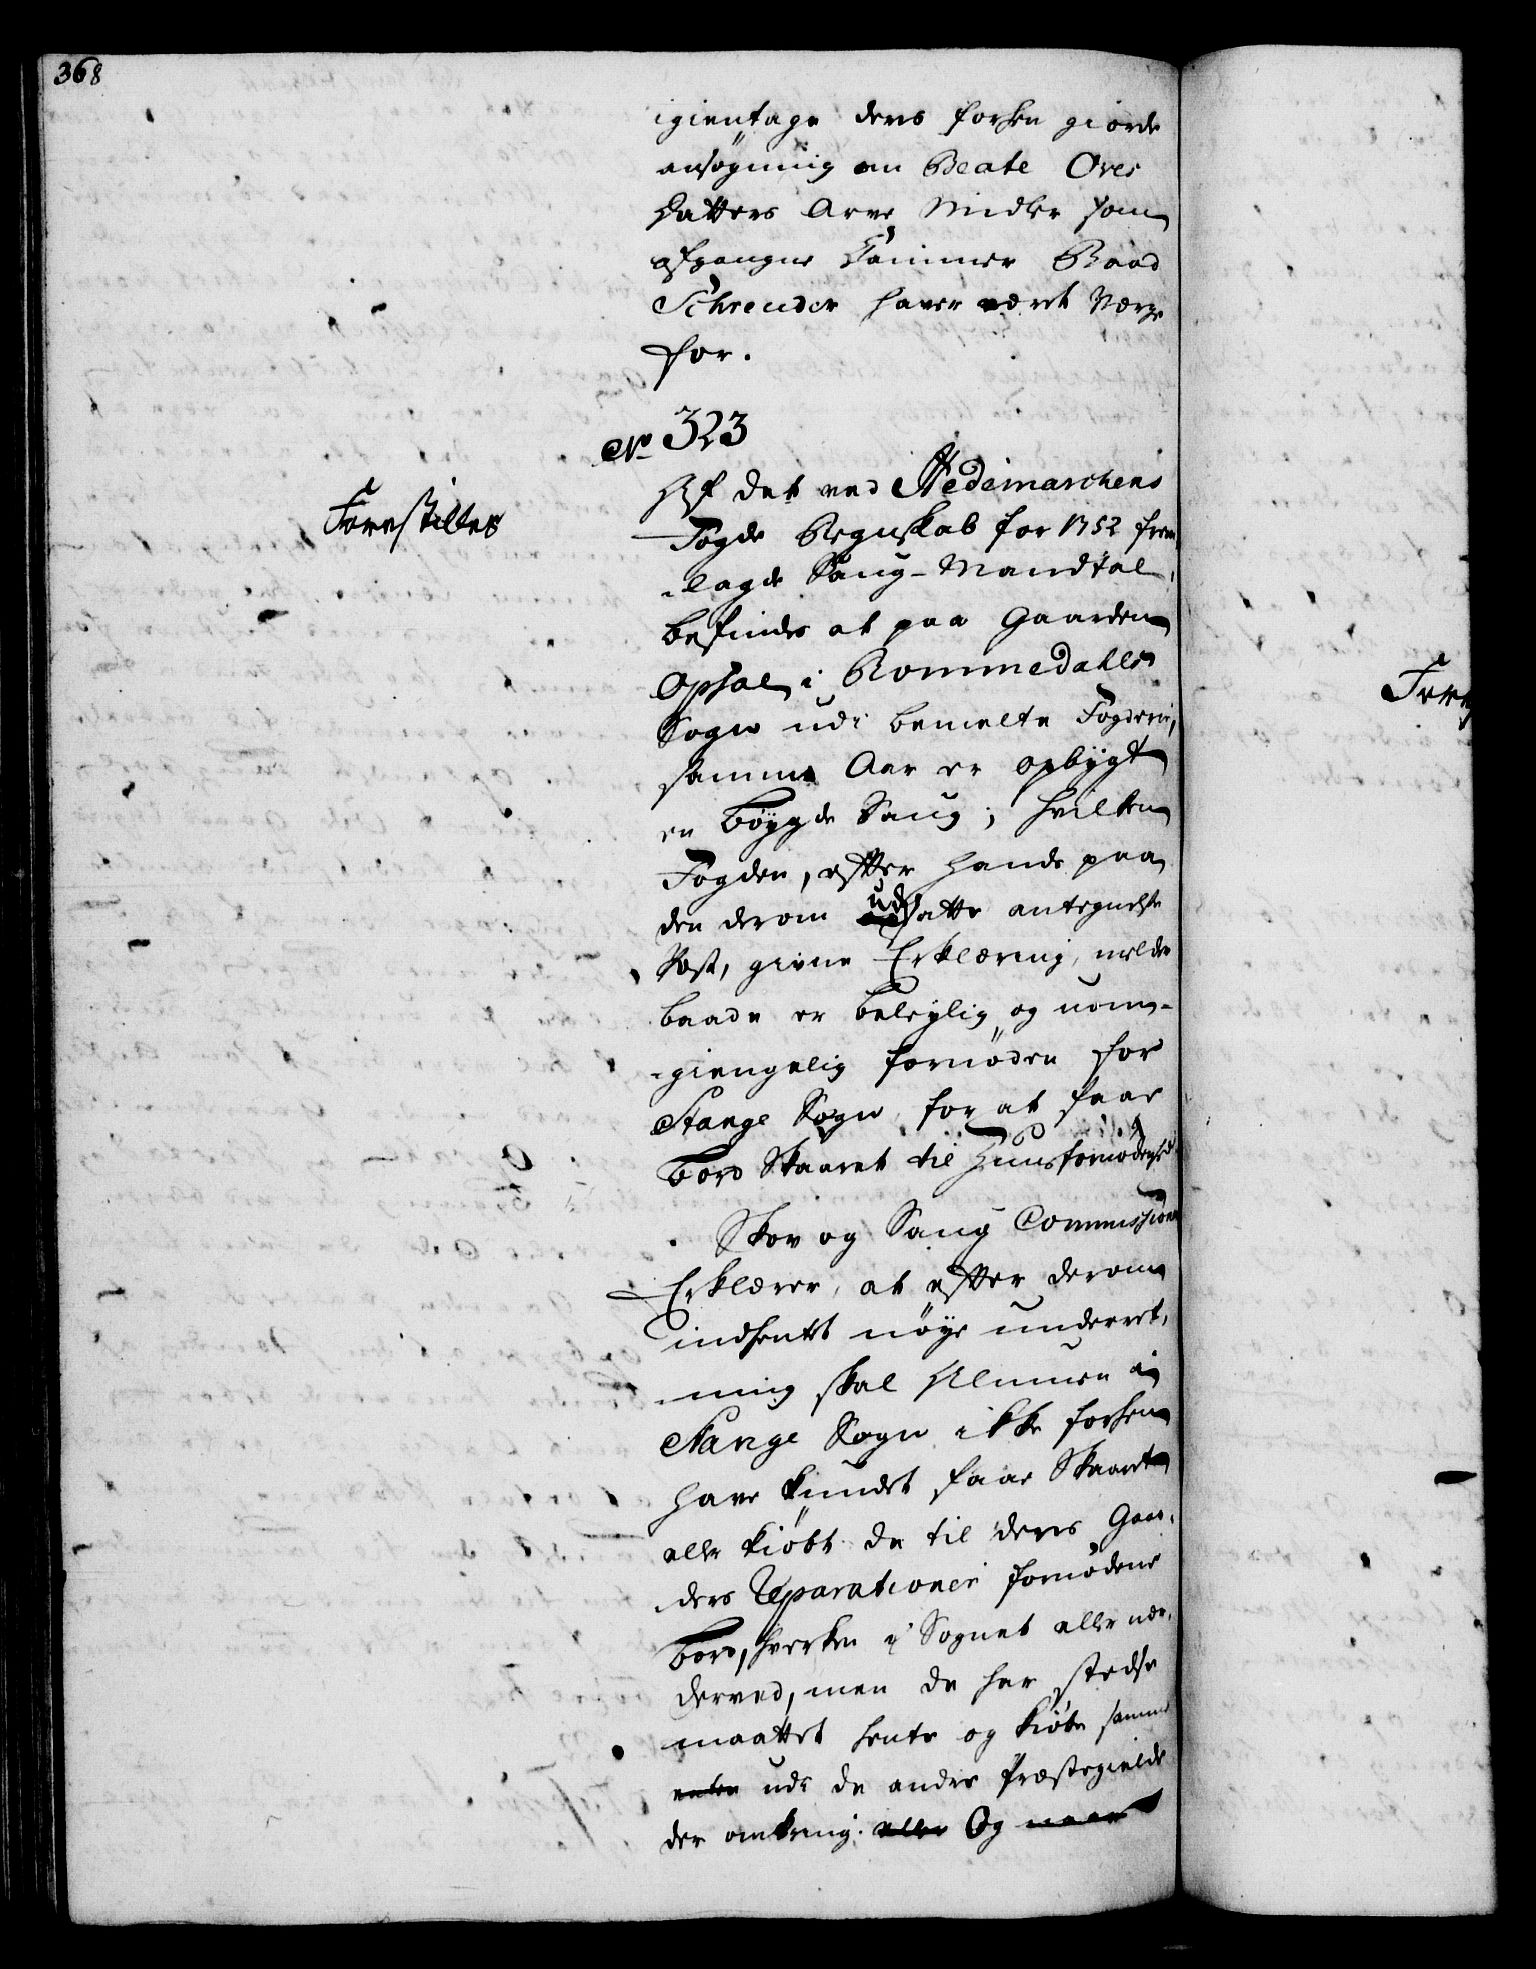 368
igientage deres forhen giorde
ansøgning om Beate Oves
Datters Arve Midler som
afgangne Cammer Raad
Schreuder haver været Værge
for.
No 323
Forestilles
Af det ved Hedemarchens
Fogde Regnskab for 1752 frem
lagde Saug-Mandtal,
befindes at paa Gaarden
Opsal i Rommedahls
Sogn udi bemelte Fogderie,
samme Aar er opbygt
en bøygde Saug; hvilken
Fogden, efter hands paa
den derom udsatte antegnelse
Post, givne Erklæring, melder
baade er beleylig og uom-
giengelig fornøden for
Stange Sogn, for at faae
bord Skaaret til Huusfornødenhed
Skov og Saug Commissionen
Erklærer, at efter derom
indhentet nøye underret,
ning skal Almuen i
Stange Sogn ikke forhen
have kundet faae Skaaret
eller kiøbt de til deres Gaar,
ders Reparationer fornødene
bord, hverken i Sognet eller nær,
derved, men de har stedse
maattet hente og kiøbe samme
uden udi de andre Præstegielde
der omkring. eller Og naar